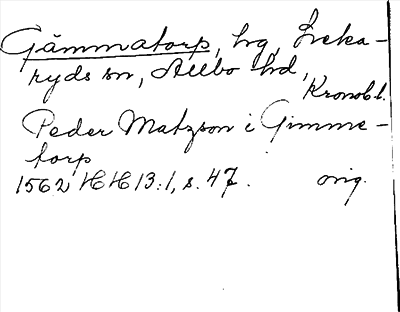 Gämmatorp, hg, Ireka-
ryds sn, Allbo hd,
Kronob l.
Peder Matzson i Gimme-
torp
1562 HH 13:1, s. 47. orig.